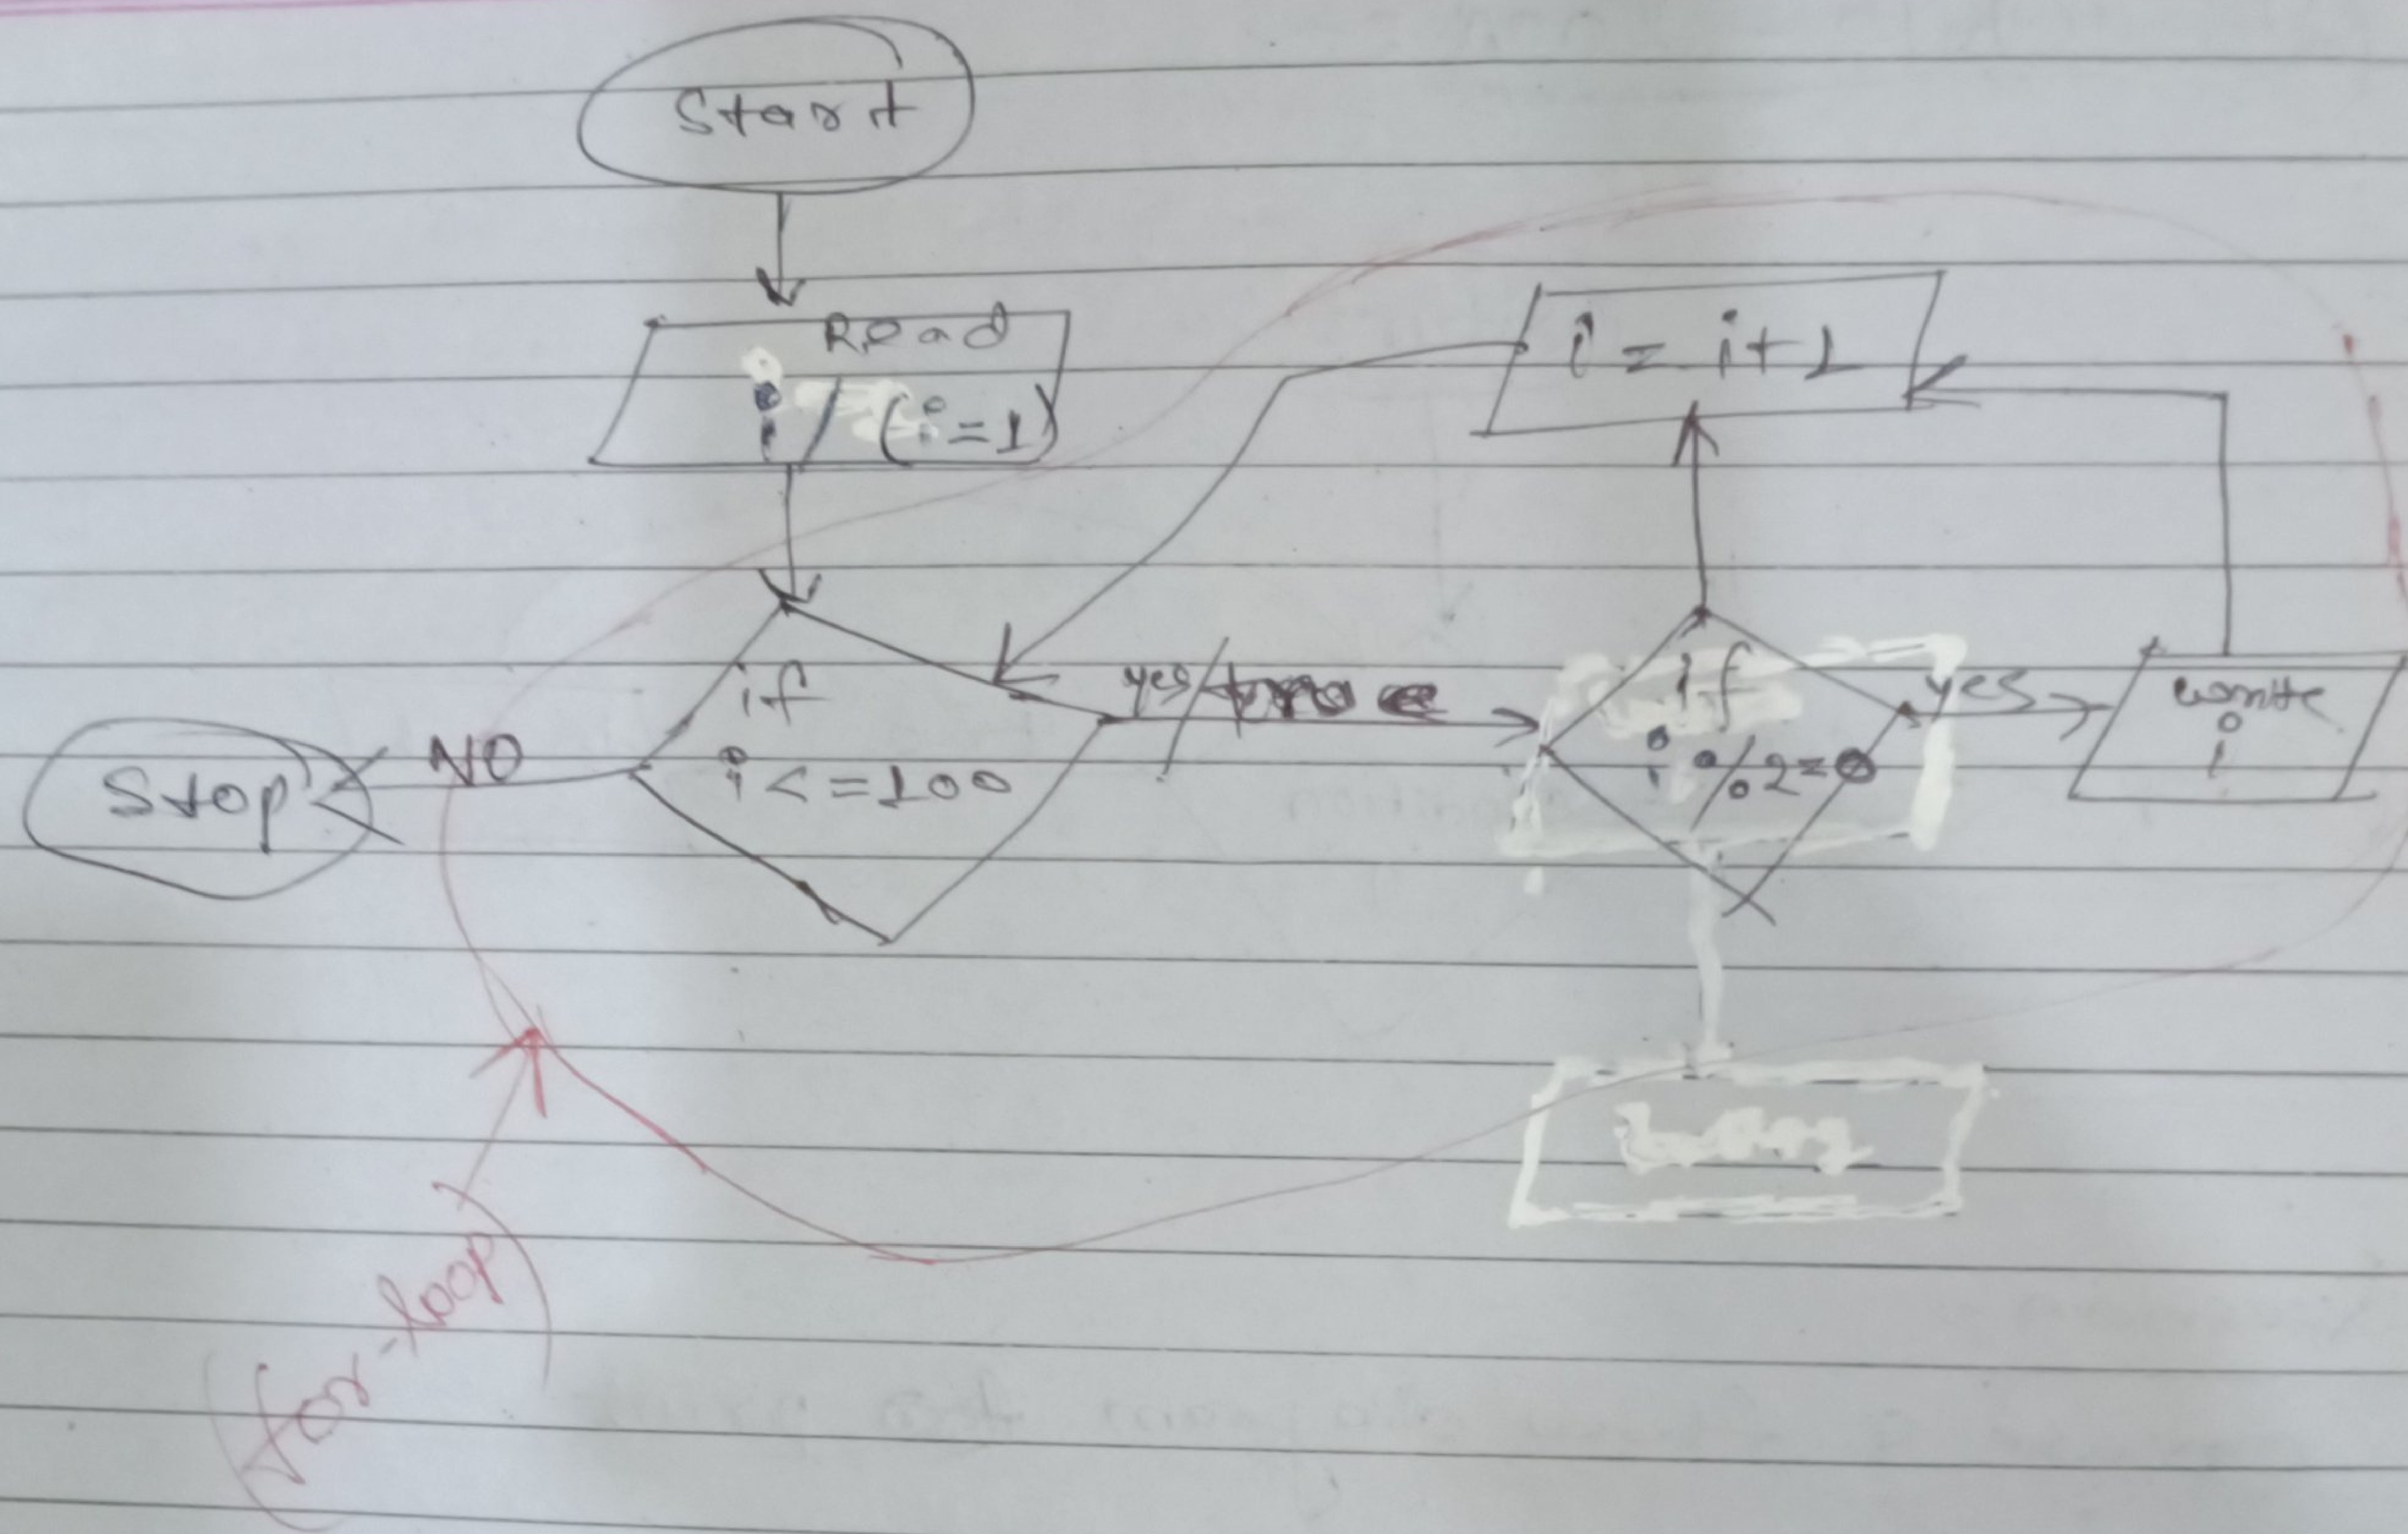 Start
Read
i / (i=1)
i = i+1
if
i<=100
yes/true
NO
Stop
if
i%2=0
yes
write
i
(for-loop)